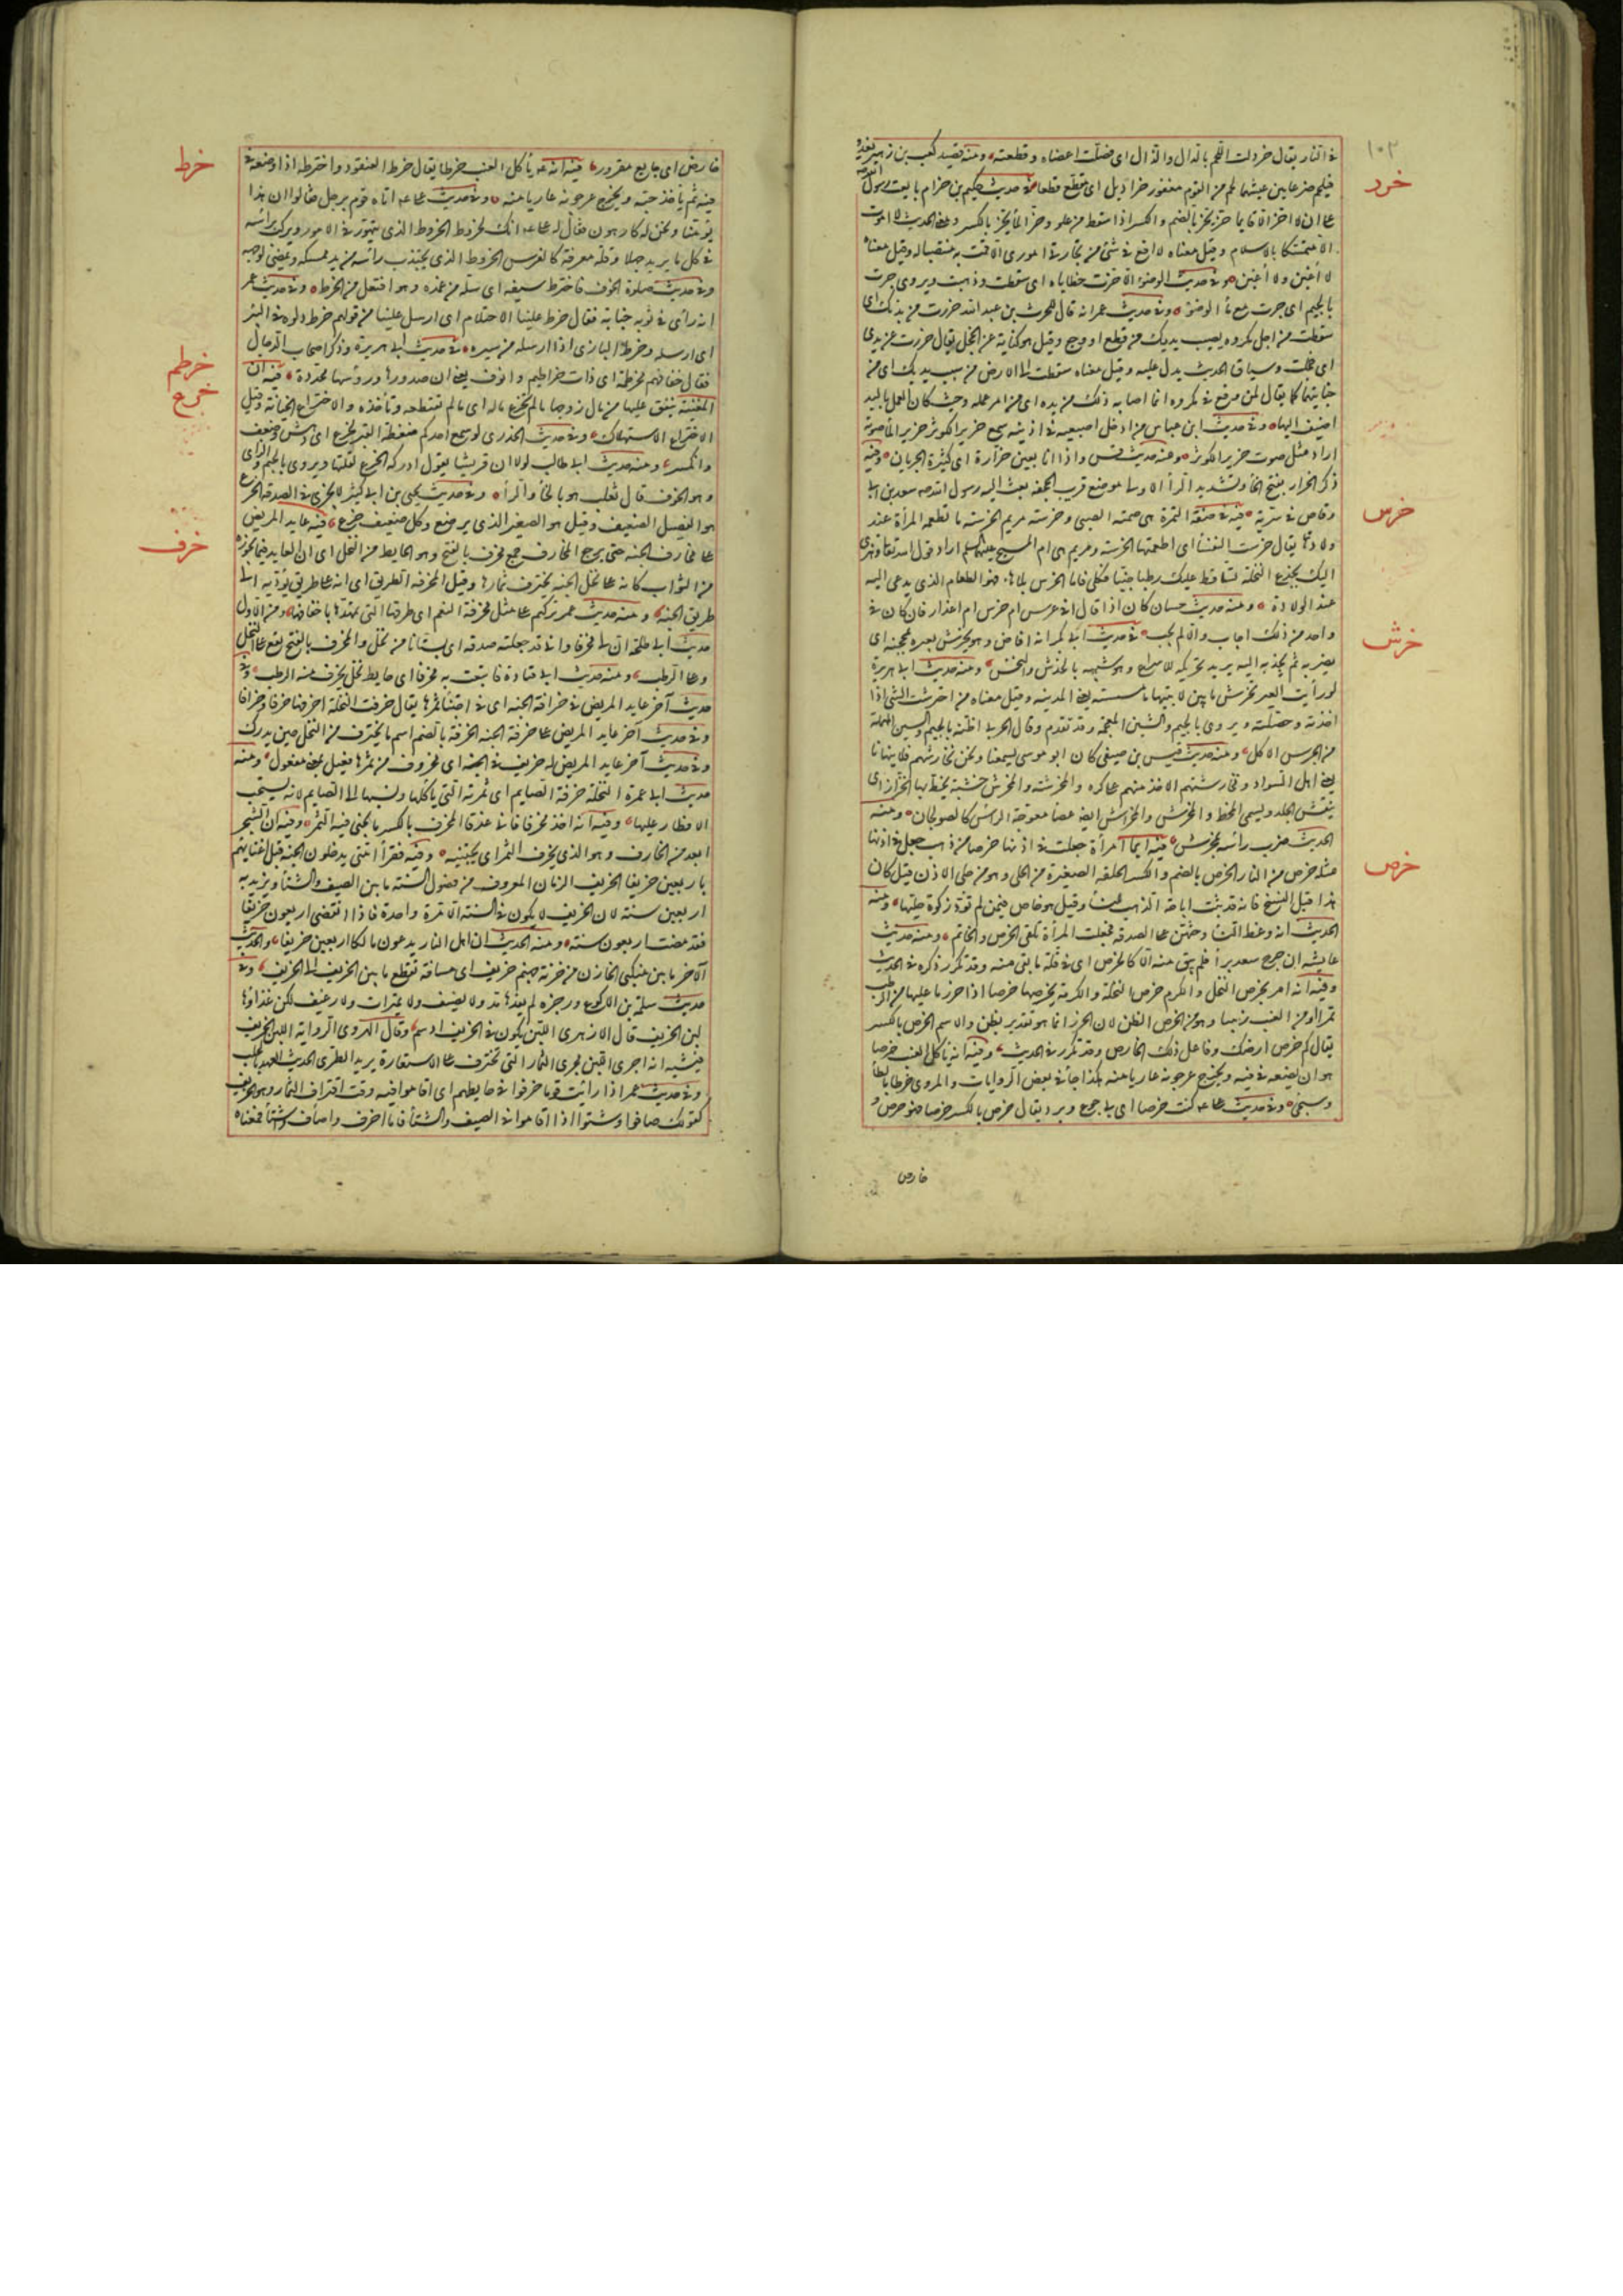 ١٠٢
في النار يقال خردلت اللحم بالدال والذال اي فصلت اعضاه وقطعته ومنه قصيد كعب بن زهير يغدو
فيلحم ضرغامين عيشهما لحم من القوم معفور خراديل اي مقطع قطعا في حديث حكيم بن حزام بايعت رسول الله صلعم
خرر
على ان لا اخر الا قايما خر يخر بالضم والكسر اذا سقط من علو وخر الما يخر بالكسر ومعنى الحديث لا اموت
الا متمسكا بالاسلام وقيل معناه لا اقع في شئ من تجارتي واموري الا قمت به منتصبا له وقيل معناه
لا اغبن ولا اغبن وفي حديث الوضوء الا خرت خطاياه اي سقطت وذهبت ويروى جرت
بالجيم اي جرت مع ما الوضوء وفي حديث عمر انه قال للحرث بن عبد الله خررت من يديك اي
سقطت من اجل مكروه يصيب يديك من قطع او وجع وقيل هو كناية عن الخجل يقال خررت عن يدي
اي خجلت وسياق الحديث يدل عليه وقيل معناه سقطت الى الارض من سبب يديك اي من
جنايتهما كما يقال لمن وقع في مكروه انما اصابه ذلك من يده اي من امر عمله وحيث كان العمل باليد
اضيف اليها وفي حديث ابن عباس من ادخل اصبعيه في اذنيه سمع خرير الكوثر خرير الما صوته
اراد مثل صوت خرير الكوثر ومنه حديث قس واذا انا بعين خرارة اي كثيرة الجريان وفيه
ذكر الخرار بفتح الخا وتشديد الرا الاولى موضع قرب الجحفة بعث اليه رسول الله صه سعد بن ابي
خرس
وقاص في سرية فيه في صفة التمرة هي صمتة الصبي وخرسة مريم الخرسة ما تطعمه المرأة عند
ولادتها يقال خرست النفسا اي اطعمتها الخرسة ومريم هي ام المسيح عليهما السلم اراد قول الله تعالى وهزي
اليك بجذع النخلة تساقط عليك رطبا جنيا فكلي فاما الخرس بلا ها فهو الطعام الذي يدعى اليه
عند الولادة ومنه حديث حسان كان اذا قال في عرس ام خرس ام اعذار فان كان في
خرش
واحد من ذلك اجاب والا لم يجب في حديث ابي بكر انه افاض وهو يخرش بعيره بمحجنه اي
يضربه ثم يجذبه اليه يريد تحريكه للاسراع وهو شبيه بالخدش والنخس ومنه حديث ابي هريرة
لو رأيت العير تخرش ما بين لابتيها ما مسسته يعني المدينه وقيل معناه من اخترشت الشئ اذا
اخذته وحصلته ويروى بالجيم والشين المعجمة وقد تقدم وقال الحربي اظنه بالجيم والسين المهملة
من الجرس الاكل ومنه حديث قيس بن صيفي كان ابو موسى يسمعنا ونحن نخارشهم فلا ينهانا
يعني اهل السواد ومخارشتهم الاخذ منهم على كره والمخرشة والمخرش خشبة يخط بها الخراز اي
ينقش الجلد ويسمى المخط والمخرش والمخراش ايضا عصا معوجة الراس كالصولجان ومنه
خرص
الحديث ضرب رأسه بمخرش فيه ايما امرأة جعلت في اذنها خرصا من ذهب جعل في اذنها
مثله خرص من النار الخرص بالضم والكسر الحلقة الصغيرة من الحلى وهو من حلى الاذن قيل كان
هذا قبل النسخ فانه قد ثبت اباحة الذهب للنسا وقيل هو خاص فيمن لم تؤد زكوة حليتها ومنه
الحديث انه وعظ النسا وحثهن على الصدقه فجعلت المرأة تلقي الخرص والخاتم ومنه حديث
عايشه ان جرح سعد برأ فلم يبق منه الا كالخرص اي في قلة ما بقي منه وقد تكرر ذكره في الحديث
وفيه انه امر بخرص النخل والكرم خرص النخلة والكرمة يخرصها خرصا اذا حرز ما عليها من الرطب
تمرا ومن العنب زبيبا وهو من الخرص الظن لان الحرز انما هو تقدير بظن والاسم الخرص بالكسر
يقال كم خرص ارضك وفاعل ذلك الخارص وقد تكرر في الحديث وفيه انه كان يأكل العنب خرصا
هو ان يضعه في فيه ويخرج عرجونه عاريا منه هكذا جا في بعض الروايات والمروي خرطا بالطا
وسيجئ وفي حديث علي كنت خرصا اي بي جوع وبرد يقال خرص بالكسر خرصا فهو خرص و
خارص
خرط
خارص اي جايع مقرور فيه انه عم يأكل العنب خرطا يقال خرط العنقود واخترطه اذا وضعه في
فيه ثم يأخذ حبه ويخرج عرجونه عاريا منه وفي حديث علي اتاه قوم برجل فقالوا ان هذا
يؤمنا ونحن له كارهون فقال له علي انك لخروط الخروط الذي يتهور في الامور ويركب رأسه
في كل ما يريد جهلا وقلة معرفة كالفرس الخروط الذي يجتذب رأسه من يد ممسكه ويمضي لوجهه
وفي حديث صلوة الخوف فاخترط سيفه اي سله من غمده وهو افتعل من الخرط وفي حديث عمر
انه رأى في ثوبه جنابة فقال خرط علينا الاحتلام اي ارسل علينا من قولهم خرط دلوه في البئر
اي ارسله وخرط البازي اذا ارسله من سيره في حديث ابي هريرة وذكر اصحاب الدجال
خرطم
فقال خفافهم مخرطمة اي ذات خراطيم وانوف يعني ان صدورها ورؤسها محددة فيه ان
خرع
المغيبة ينفق عليها من مال زوجها ما لم تخترع ماله اي ما لم تقتطعه وتأخذه والاختراع الخيانة وقيل
الاختراع الاستهلاك وفي حديث الخدري لو سمع احدكم ضغطة القبر لخرع اي دهش وضعف
وانكسر ومنه حديث ابي طالب لولا ان قريشا يقول ادركه الخرع لقلتها ويروى بالجيم والزاي
وهو الخوف قال ثعلب هو بالخا والرا وفي حديث يحيى بن ابي كثير لا يجزئ في الصدقه الخرع
هو الفصيل الضعيف وقيل هو الصغير الذي يرضع وكل ضعيف خرع فيه عايد المريض
خرف
على مخارف الجنه حتى يرجع المخارف جمع مخرف بالفتح وهو الحايط من النخل اي ان العايد فيما يحوزه
من الثواب كانه على نخل الجنه يخترف ثمارها وقيل المخارف جمع مخرفة الطريق اي انه على طريق تؤديه الى
طريق الجنه ومنه حديث عمر تركتكم على مثل مخرفة النعم اي طرقها التي تمهدها باخفافها ومن الاول
حديث ابي طلحة ان لي مخرفا واني قد جعلته صدقه اي بستانا من نخل والمخرف بالفتح يقع على النخل
وعلى الرطب ومنه حديث ابي قتادة فابتعت به مخرفا اي حايط نخل يخرف منه الرطب وفي
حديث آخر عايد المريض في خرافة الجنه اي في اجتنا ثمرها يقال خرفت النخلة اخرفها خرفا وخرافا
وفي حديث آخر عايد المريض على خرفة الجنه الخرفة بالضم اسم ما يخترف من النخل حين يدرك
وفي حديث آخر عايد المريض له خريف في الجنه اي مخروف من ثمرها فعيل بمعنى مفعول ومنه
حديث ابي عمرة النخلة خرفة الصايم اي ثمرته التي يأكلها ونسبها الى الصايم لانه يستحب
الافطار عليها وفيه انه اخذ مخرفا فاتى عذقا المخرف بالكسر ما يجتنى فيه الثمر وفيه ان الشجر
ابعد من الخارف وهو الذي يخرف الثمر اي يجتنيه وفيه فقرأ امتي يدخلون الجنه قبل اغنيائهم
باربعين خريفا الخريف الزمان المعروف من فصول السنة ما بين الصيف والشتا ويريد به
اربعين سنة لان الخريف لا يكون في السنة الا مرة واحدة فاذا انقضى اربعون خريفا
فقد مضت اربعون سنة ومنه الحديث ان اهل النار يدعون مالكا اربعين خريفا والحديث
الآخر ما بين منكبي الخازن من خزنة جهنم خريف اي مسافة تقطع ما بين الخريف الى الخريف وفي
حديث سلمة بن الاكوع ورجزه لم يغذها مد ولا نصيف ولا تميرات ولا رغيف لكن غذاؤها
لبن الخريف قال الازهري اللبن يكون في الخريف ادسم وقال الهروي الرواية اللبن الخريف
فيشبه انه اجرى اللبن مجرى الثمار التي تخترف على الاستعارة يريد الطري الحديث العهد بالحلب
وفي حديث عمر اذا رأيت قوما خرفوا في حايطهم اي اقاموا فيه وقت اختراف الثمار وهو الخريف
كقولك صافوا وشتوا اذا اقاموا في الصيف والشتا فاما اخرف واصاف واشتا فمعناه